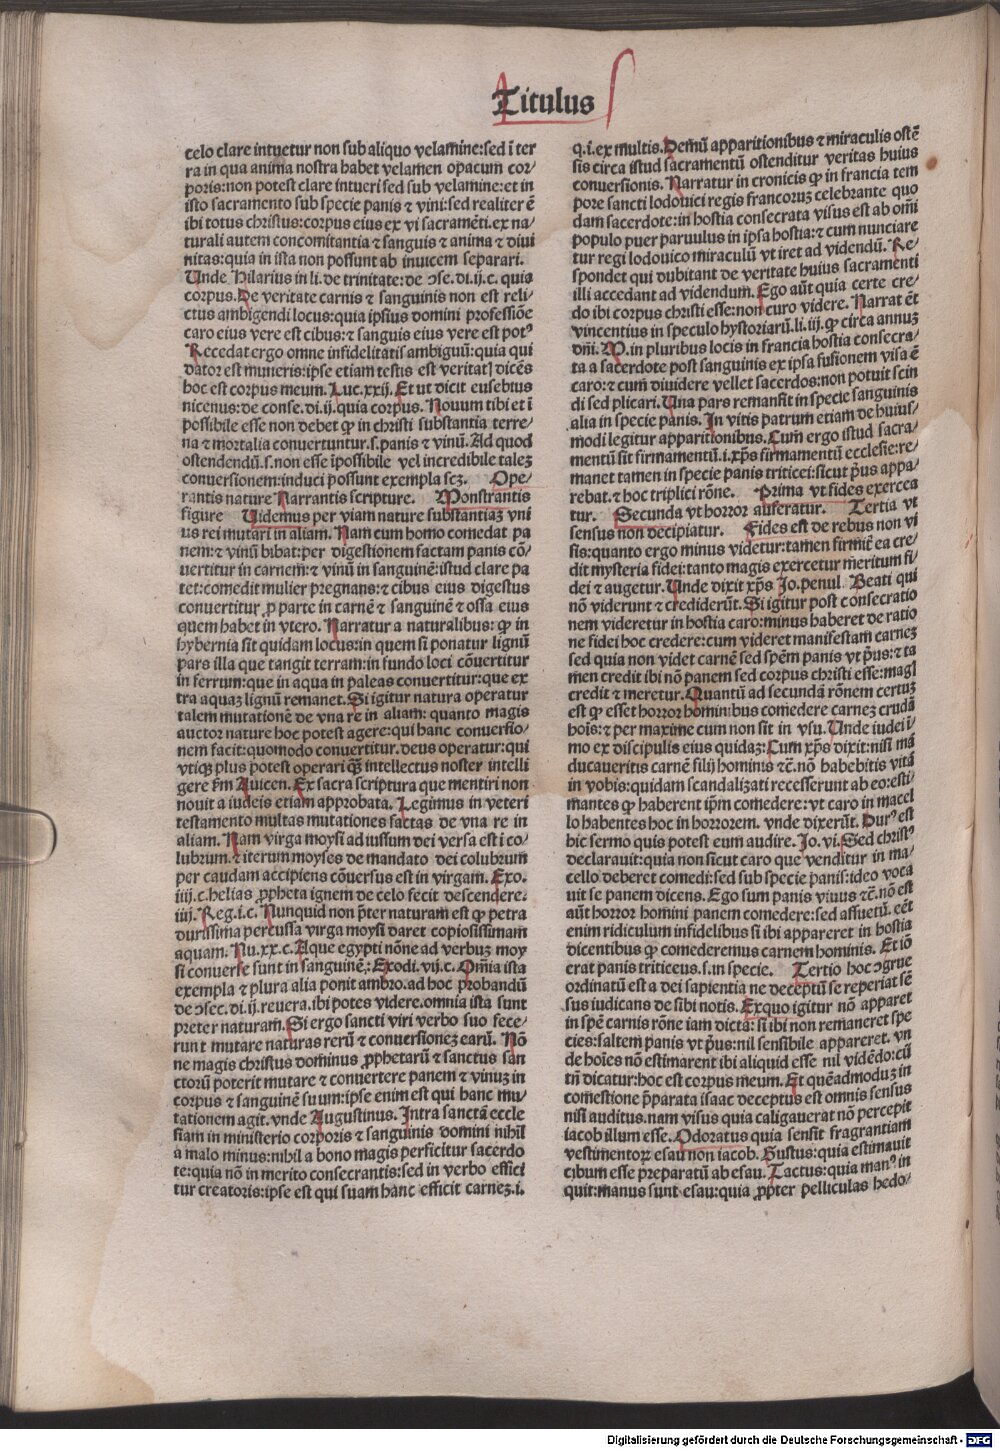 Titulus
celo clare intuetur non sub aliquo velamine:sed ī ter
ra in qua anima nostra habet velamen opacum cor⸗
poris:non potest clare intueri sed sub velamine:et in
isto sacramento sub specie panis ⁊ vini:sed realiter ē
ibi totus christus:corpus eius ex vi sacramēti.ex na⸗
turali autem concomitantia ⁊ sanguis ⁊ anima ⁊ diui
nitas:quia in ista non possunt ab inuicem separari.
Unde Hilarius in li.de trinitate:de ɔse.di.ij.c. quia
corpus.De veritate carnis ⁊ sanguinis non est reli⸗
ctus ambigendi locus:quia ipsius domini professiōe
caro eius vere est cibus:⁊ sanguis eius vere est potꝰ
Recedat ergo omne infidelitatis ambiguū:quia qui
dator est muneris:ipse etiam testis est veritatꝭ dicēs
hoc est corpus meum.Luc.xxij.Et ut dicit eusebius
nicenus:de conse.di.ij.quia corpus. Nouum tibi et ī
possibile esse non debet ꝙ in christi substantia terre⸗
na ⁊ mortalia conuertuntur.s.panis ⁊ vinū.Ad quod
ostendendū.s.non esse īpossibile vel incredibile taleꝫ
conuersionem:induci possunt exempla scꝫ. Ope⸗
rantis nature Narrantis scripture. Monstrantis
figure Uidemus per viam nature substantiaꝫ vni
us rei mutari in aliam.Nam cum homo comedat pa
nem:⁊ vinū bibat:per digestionem factam panis cō⸗
uertitur in carnem:⁊ vinū in sanguinē:istud clare pa
tet:comedit mulier pregnans:⁊ cibus eius digestus
conuertitur ꝓ parte in carnē ⁊ sanguinē ⁊ ossa eius
quem habet in vtero. Narratur a naturalibus: ꝙ in
hybernia sit quidam locus:in quem si ponatur lignū
pars illa que tangit terram:in fundo loci cōuertitur
in ferrum:que in aqua in paleas conuertitur:que ex
tra aquaꝫ lignū remanet.Si igitur natura operatur
talem mutationē de vna re in aliam: quanto magis
auctor nature hoc potest agere:qui hanc conuersio⸗
nem facit:quomodo conuertitur.deus operatur:qui
vtiqꝫ plus potest operari qꝫ̄ intellectus noster intelli
gere ꝑm Auicen.Ex sacra scriptura que mentiri non
nouit a iudeis etiam approbata. Legimus in veteri
testamento multas mutationes factas de vna re in
aliam. Nam virga moysi ad iussum dei versa est ī co⸗
lubrum.⁊ iterum moyses de mandato dei colubrum
per caudam accipiens cōuersus est in virgam. Exo.
iiij.c.helias ꝓpheta ignem de celo fecit descendere:
iiij.Reg.ī.c. Nunquid non p̄ter naturam est ꝙ petra
durissima percussa virga moysi daret copiosissimam
aquam. Nu.xx.c.Aque egypti nōne ad verbuꝫ moy
si conuerse sunt in sanguinē:Exodi.vij.c.Om̄ia ista
exempla ⁊ plura alia ponit ambro.ad hoc ꝓbandū
de ɔsec.di.ij.reuera.ibi potes videre.omnia ista sunt
preter naturam.Si ergo sancti viri verbo suo fece⸗
runt mutare naturas rerū ⁊ conuersioneꝫ earū. Nō
ne magis christus dominus ꝓphetarū ⁊ sanctus san
ctorū poterit mutare ⁊ conuertere panem ⁊ vinuꝫ in
corpus ⁊ sanguinē suum:ipse enim est qui hanc mu⸗
tationem agit.vnde Augustinus.Intra sanctā eccle
siam in ministerio corporis ⁊ sanguinis domini nihil
a malo minus:nihil a bono magis perficitur sacerdo
te:quia nō in merito consecrantis:sed in verbo effici
tur creatoris:ipse est qui suam hanc efficit carneꝫ.i.
q.ī.ex multis.Demū apparitionibus ⁊ miraculis ostē
sis circa istud sacramentū ostenditur veritas huius
conuersionis. Narratur in cronicis ꝙ in francia tem
pore sancti lodouici regis francoruꝫ celebrante quo
dam sacerdote:in hostia consecrata visus est ab om̄i
populo puer paruulus in ipsa hostia:⁊ cum nunciare
tur regi lodouico miraculū vt iret ad videndū. Re⸗
spondet qui dubitant de veritate huius sacramenti
illi accedant ad videndum.Ego aūt quia certe cre⸗
do ibi corpus christi esse:non curo videre. Narrat ēt
vincentius in speculo hystoriarū.li.iij.ꝙ circa annuꝫ
dn̄i.M.in pluribus locis in francia hostia consecra⸗
ta a sacerdote post sanguinis ex ipsa fusionem visa ē
caro:⁊ cum diuidere vellet sacerdos:non potuit scin
di sed plicari.Una pars remansit in specie sanguinis
alia in specie panis. In vitis patrum etiam de huius⸗
modi legitur apparitionibus.Cum ergo istud sacra⸗
mentū sit firmamentū.i.xp̄s firmamentū ecclesie:re⸗
manet tamen in specie panis triticei:sicut p̄us appa⸗
rebat.⁊ hoc triplici rōne. Prima vt fides exercea
tur. Secunda vt horror auferatur. Tertia vt
sensus non decipiatur. Fides est de rebus non vi
sis:quanto ergo minus videtur:tamen firmiꝰ ea cre⸗
dit mysteria fidei:tanto magis exercetur meritum fi⸗
dei ⁊ augetur.Unde dixit xp̄s Jo.penul. Beati qui
nō viderunt ⁊ crediderūt.Si igitur post consecratio
nem videretur in hostia caro:minus haberet de ratio
ne fidei hoc credere:cum videret manifestam carneꝫ
sed quia non videt carnē sed spēm panis vt p̄us:⁊ ta
men credit ibi nō panem sed corpus christi esse:magꝭ
credit ⁊ meretur.Quantū ad secundā rōnem certuꝫ
est ꝙ esset horror hominibus comedere carneꝫ crudā
hoīs:⁊ per maxime cum non sit in vsu. Unde iudei ī⸗
mo ex discipulis eius quidaꝫ:Cum xp̄s dixit:nisi mā
ducaueritis carnē filij hominis ⁊c̄.nō habebitis vitā
in vobis:quidam scandalizati recesserunt ab eo:esti⸗
mantes ꝙ haberent ip̄m comedere:vt caro in macel
lo habentes hoc in horrorem. vnde dixerūt.Durꝰ est
hic sermo quis potest eum audire.Jo.vi.Sed christꝰ
declarauit:quia non sicut caro que venditur in ma⸗
cello deberet comedi:sed sub specie panis:ideo voca
uit se panem dicens. Ego sum panis viuus ⁊c̄.nō est
aūt horror homini panem comedere:sed assuetū. eēt
enim ridiculum infidelibus si ibi appareret in hostia
dicentibus ꝙ comederemus carnem hominis. Et iō
erat panis triticeus.s.in specie. Tertio hoc ɔgrue
ordinatū est a dei sapientia ne deceptū se reperiat sē
sus iudicans de sibi notis. Exquo igitur nō apparet
in spē carnis rōne iam dicta: si ibi non remaneret spe
cies:saltem panis vt p̄us:nil sensibile appareret. vn
de hoīes nō estimarent ibi aliquid esse nil vidēdo:cū
tn̄ dicatur:hoc est corpus meum. Et quēadmoduꝫ in
comestione p̄parata isaac deceptus est omnis sensus
nisi auditus.nam visus quia caligauerat nō percepit
iacob illum esse. Odoratus quia sensit fragrantiam
vestimentorꝝ esau non iacob. Gustus:quia estimauit
cibum esse preparatū ab esau. Tactus:quia manꝰ in
quit:manus sunt esau:quia ꝓpter pelliculas hedo⸗
Digitalisierung gefördert durch die Deutsche Forschungsgemeinschaft - DFG